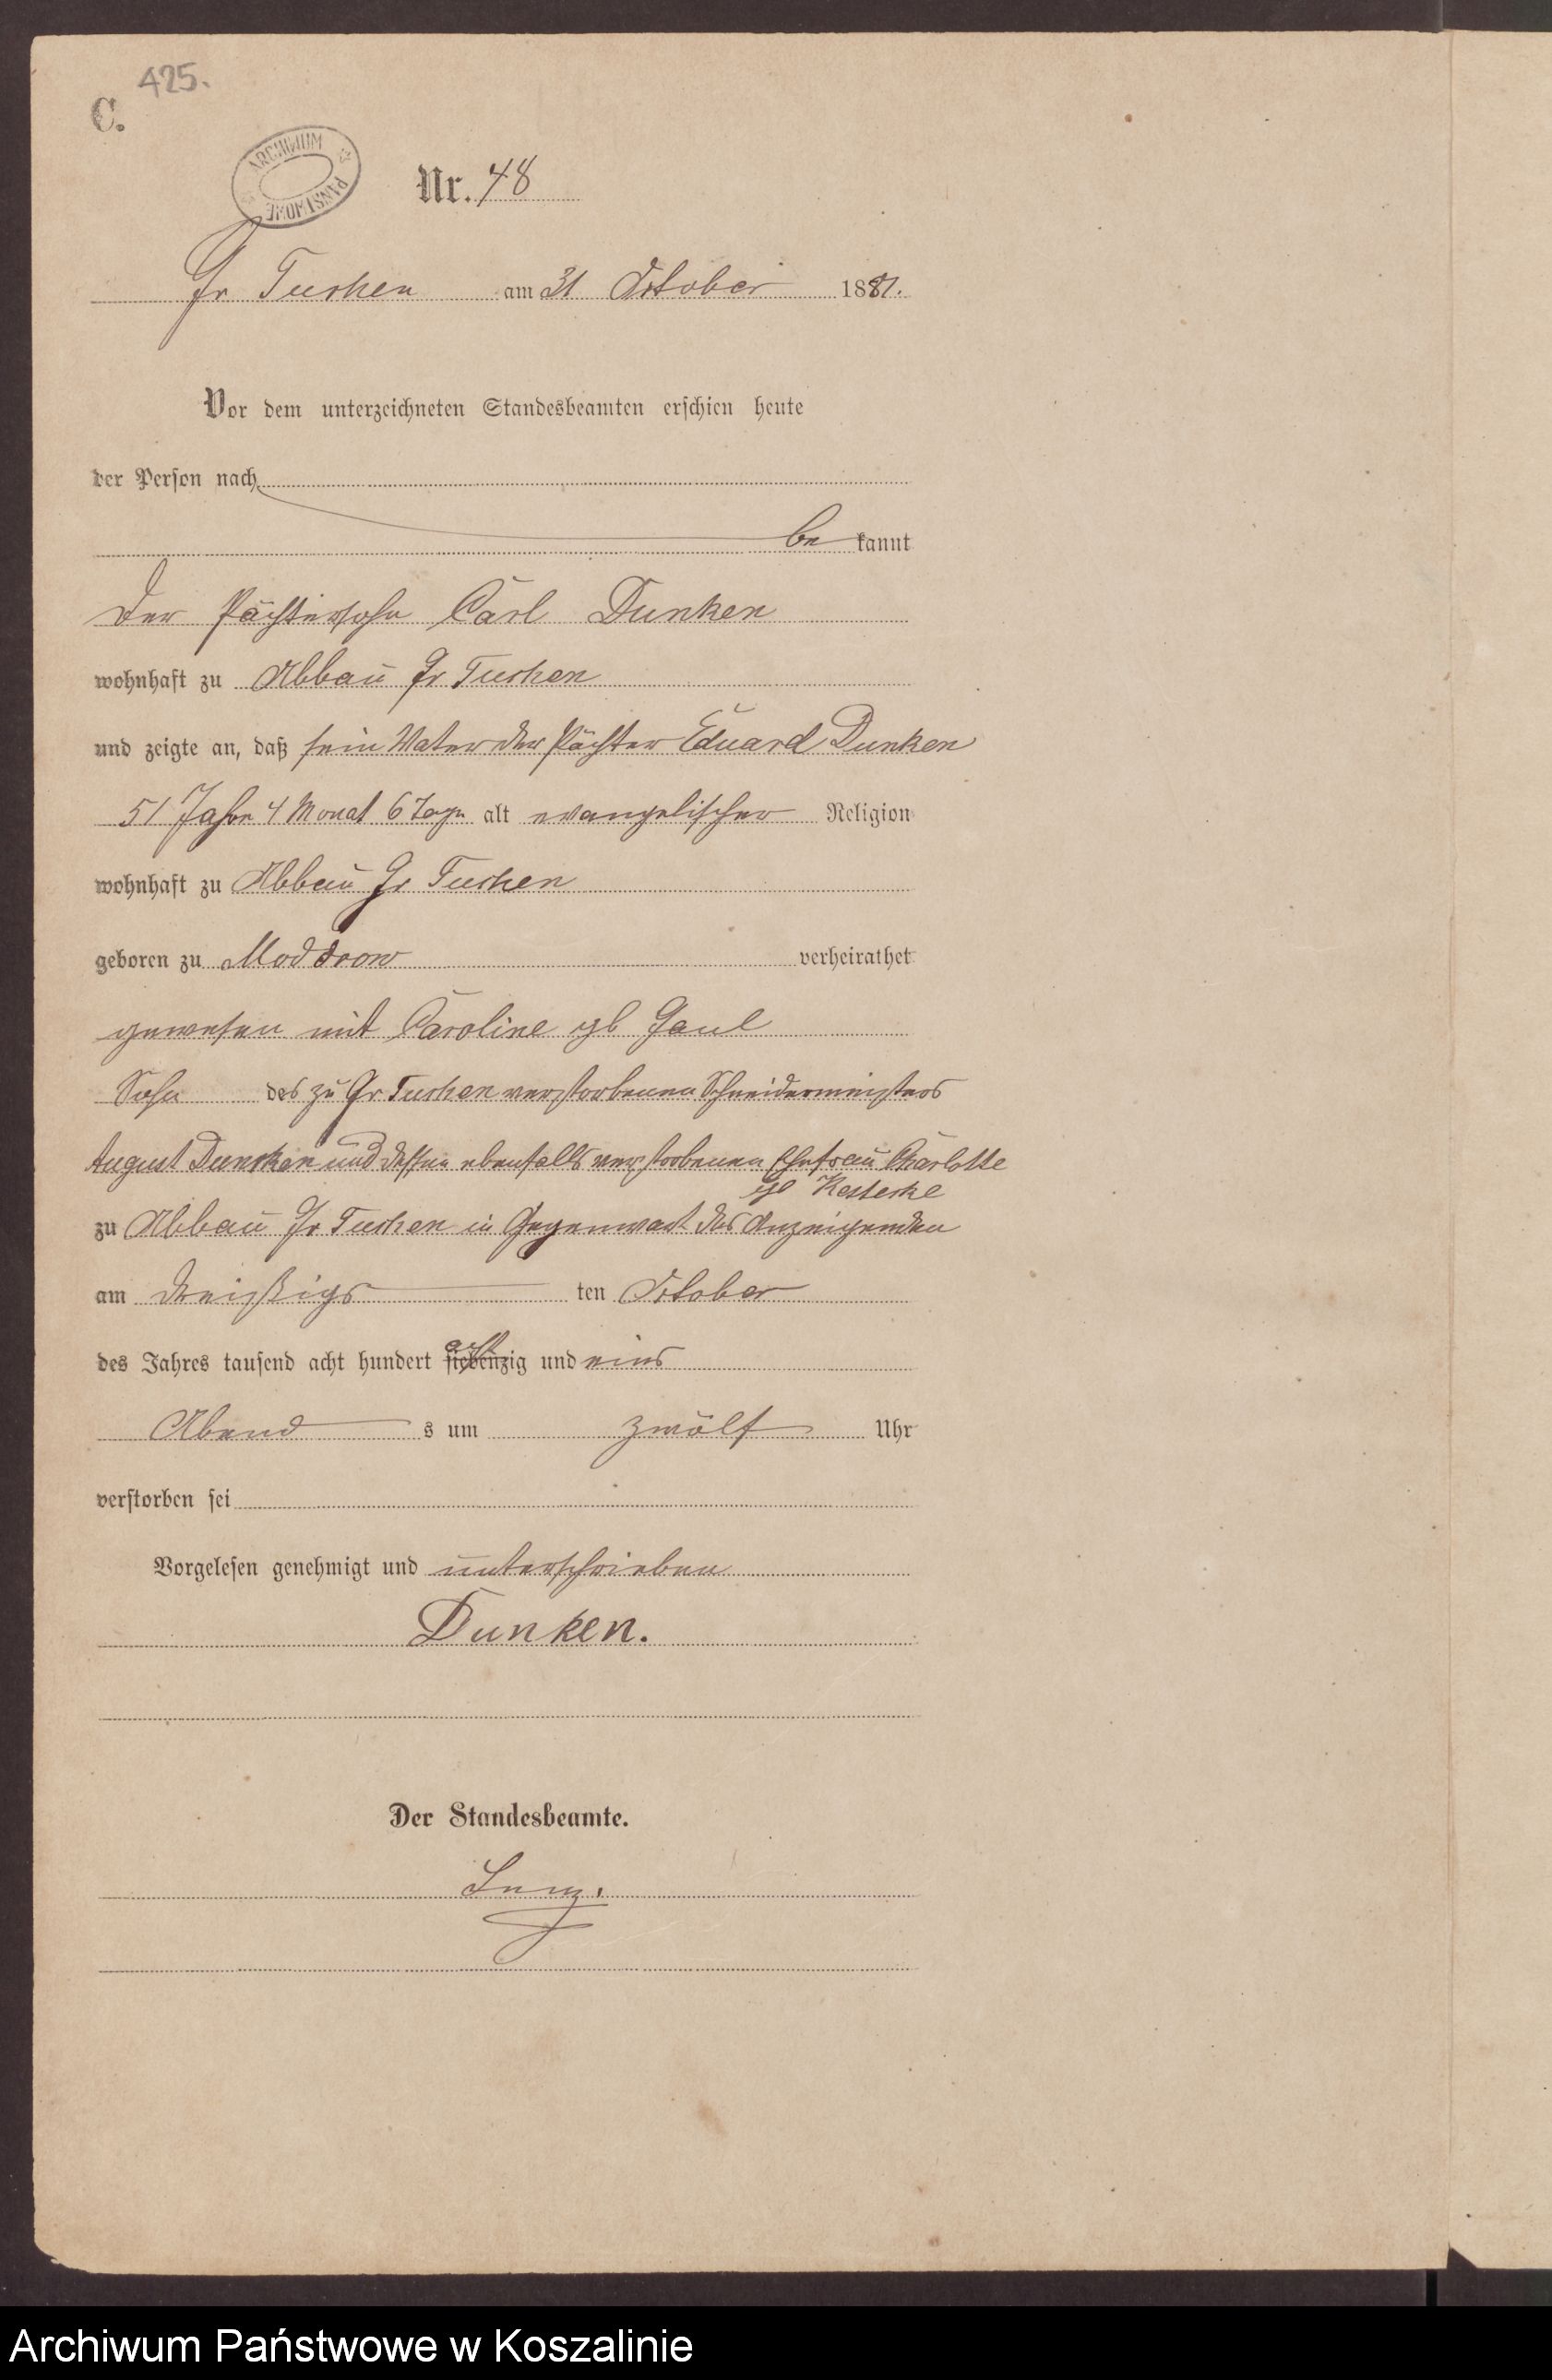 425.
C.
ARCHIWUM PAŃSTWOWE
Nr. 48
Gr Tuchen am 31 October 1881.
Vor dem unterzeichneten Standesbeamten erschien heute
der Person nach
be kannt
der Pächtersohn Carl Dunken
wohnhaft zu Abbau Gr Tuchen
und zeigte an, daß sein Vater der Pächter Eduard Dunken
51 Jahre 4 Monat 6 Tage alt evangelischer Religion
wohnhaft zu Abbau Gr Tuchen
geboren zu Moddrow verheirathet
gewesen mit Caroline gb Gaul
Sohn des zu Gr Tuchen verstorbenen Schneidermeisters
August Duncken und dessen ebenfalls verstorbenen Ehefrau Charlotte
gb
zu Abbau Gr Tuchen in Gegenwart des Anzeigenden
am dreißigs ten October
des Jahres tausend acht hundert siebenzig acht und eins
Abend s um zwölf Uhr
verstorben sei
Vorgelesen genehmigt und unterschrieben
Dunken.
Der Standesbeamte.
Archiwum Państwowe w Koszalinie